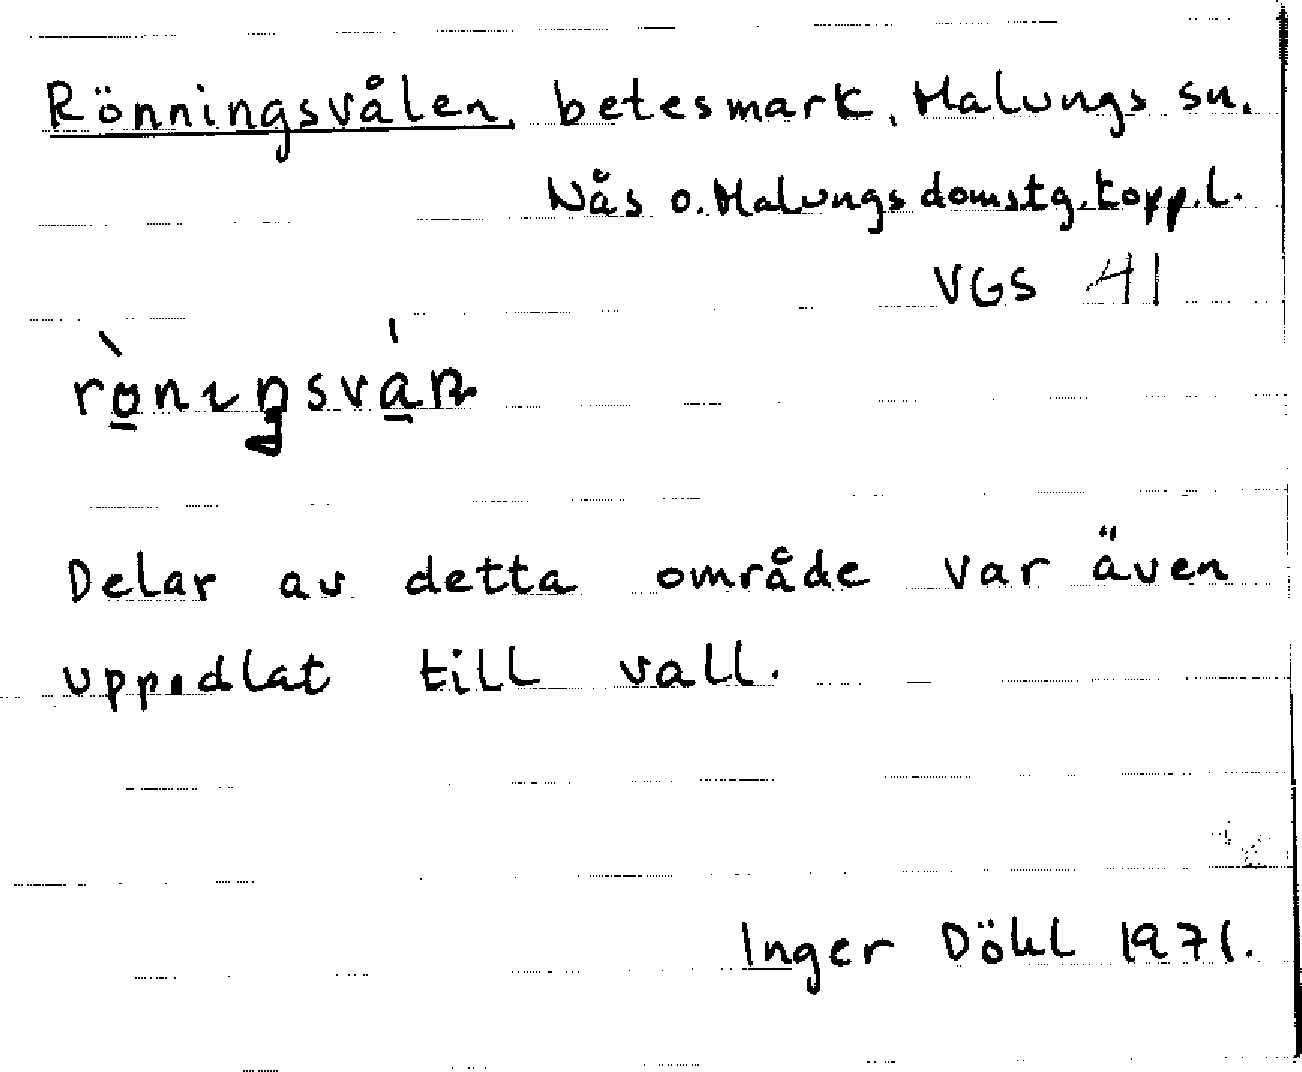 Rönningsvålen, betesmark, Malungs sn.
Nås o. Malungs domstg. koppl.
VGS 41
Delar av detta område var även
uppodlat till vall.
Inger Döhl 1971.